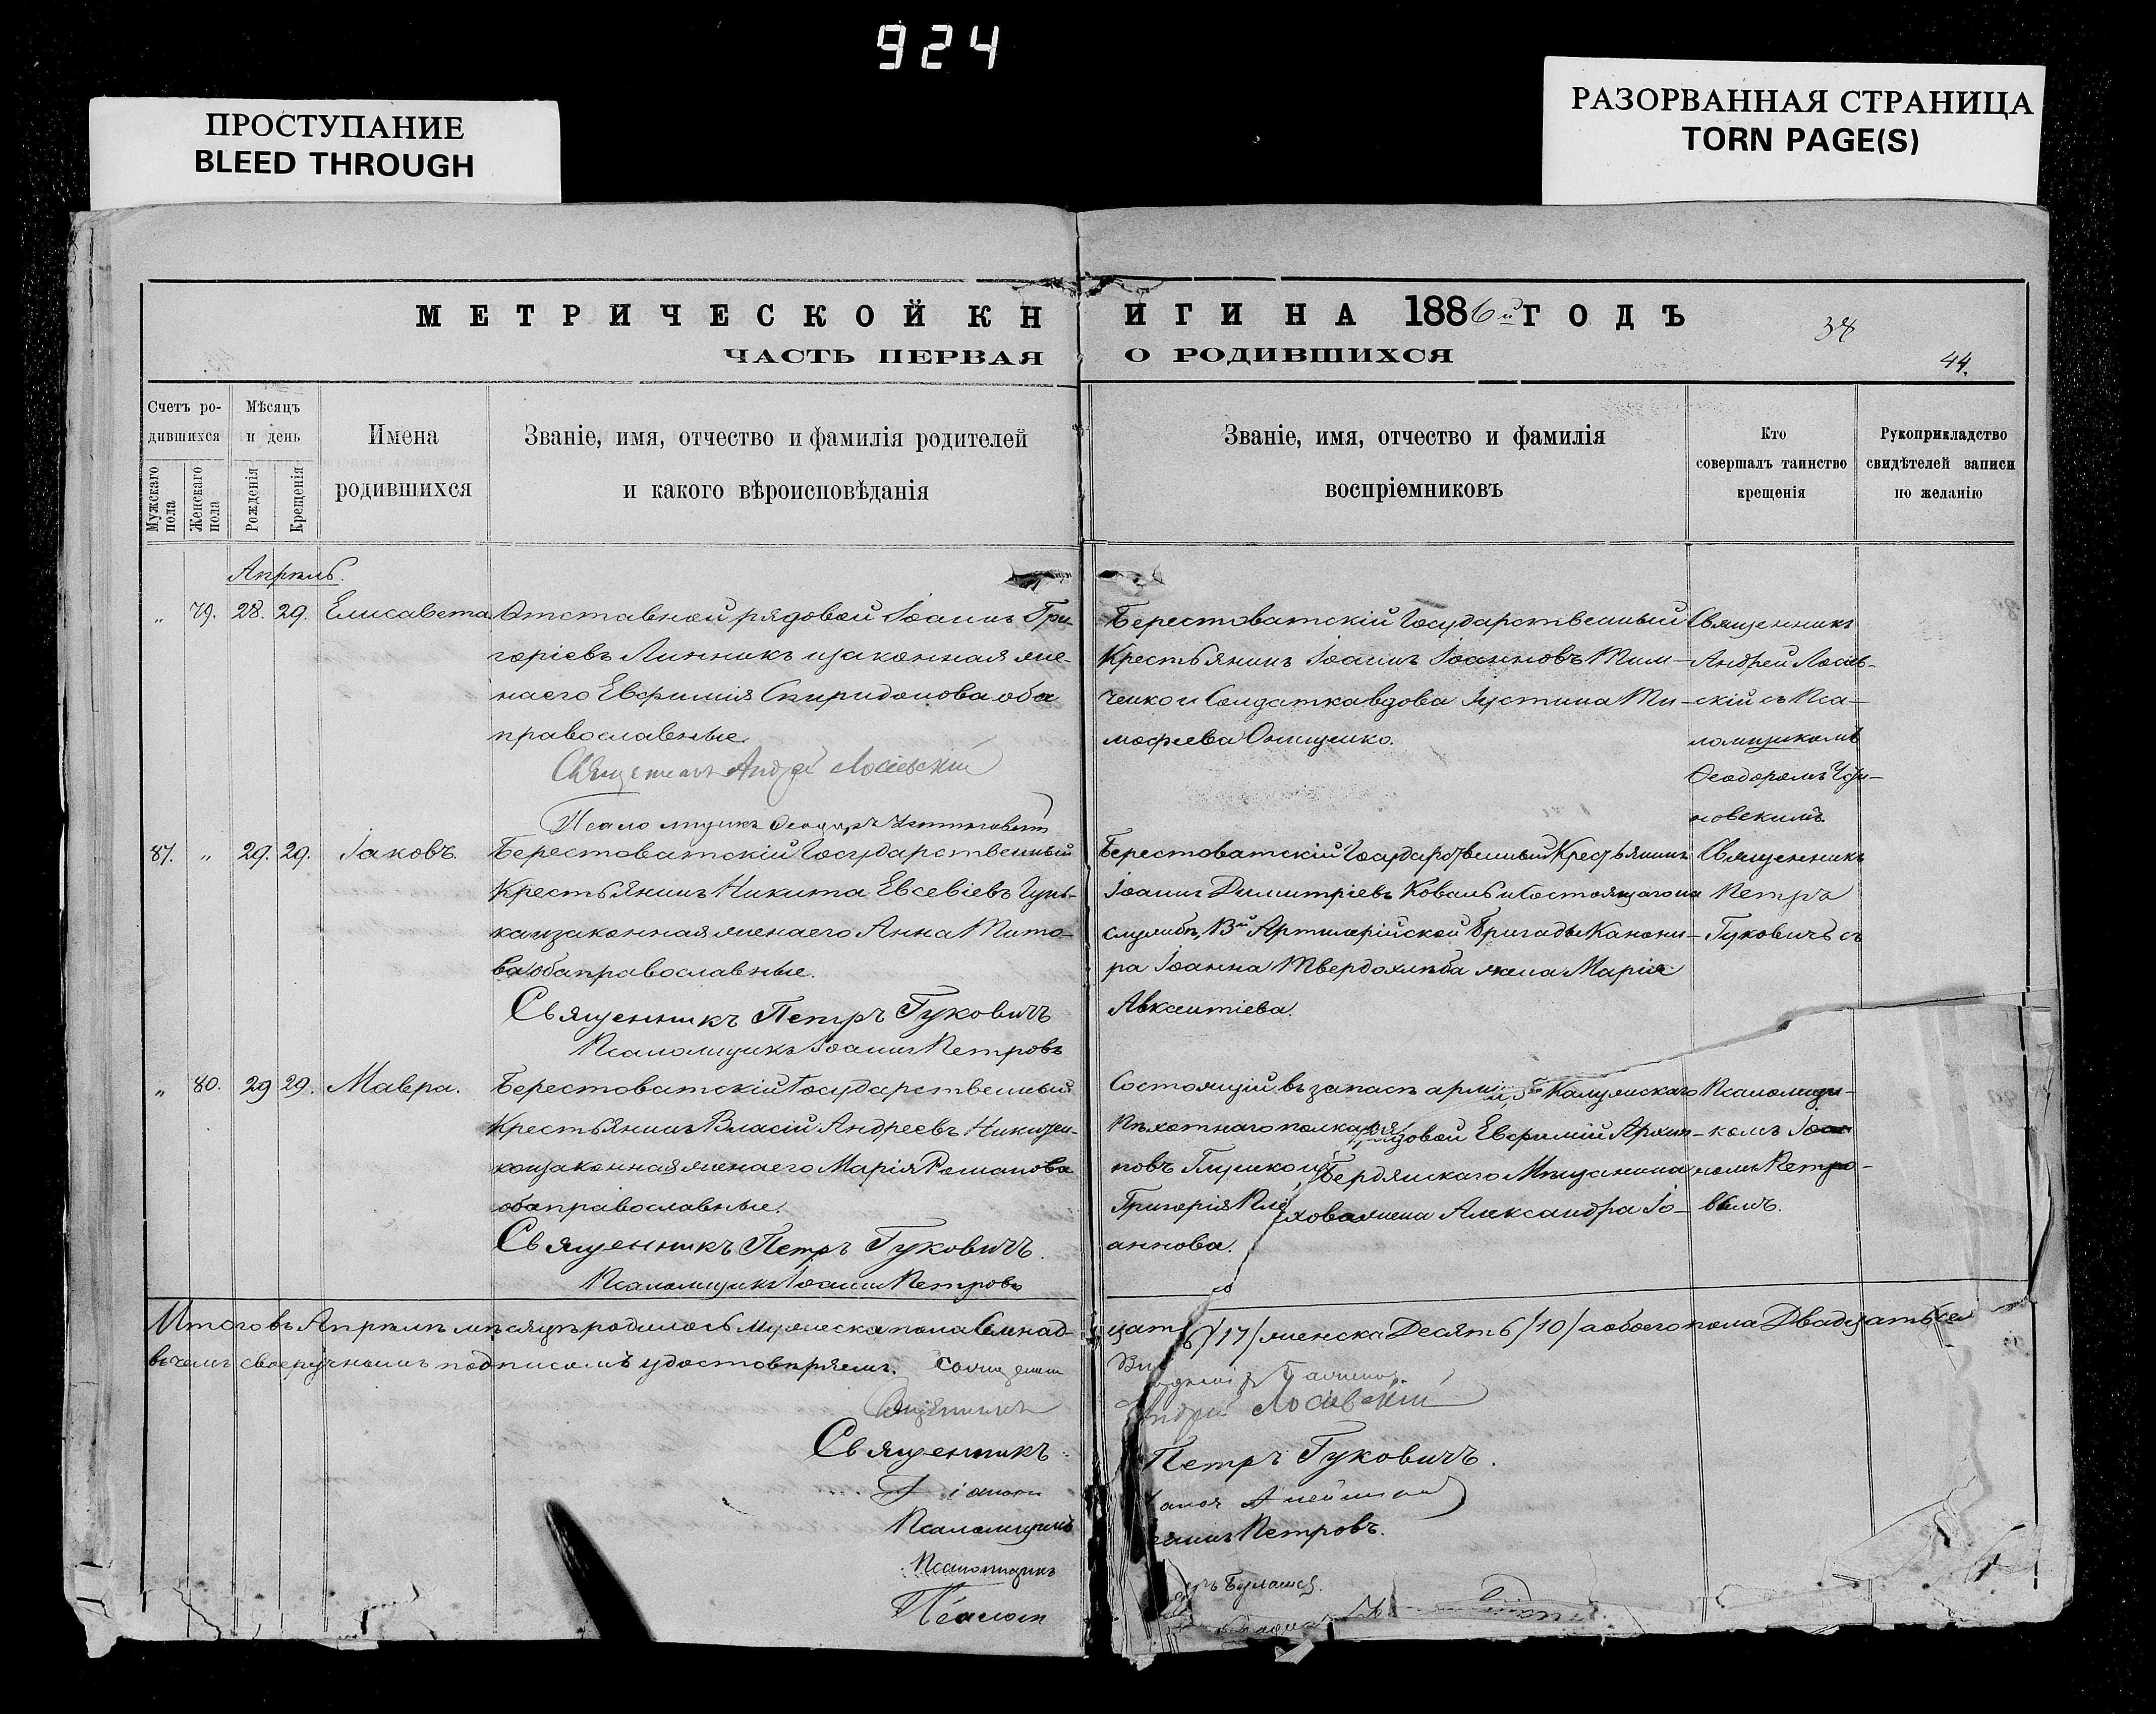 924
ПРОСТУПАНИЕ
BLEED THROUGH
РАЗОРВАННАЯ СТРАНИЦА
TORN PAGE(S)
МЕТРИЧЕСКОЙ КНИГИ НА 1886й ГОДЪ
ЧАСТЬ ПЕРВАЯ О РОДИВШИХСЯ
44.
Счетъ ро-
дившихся
Мужскаго пола
Женскаго пола
Мѣсяцъ
и день
Рожденія
Крещенія
Имена
родившихся
Званіе, имя, отчество и фамилія родителей
и какого вѣроисповѣданія
Званіе, имя, отчество и фамилія
воспріемниковъ
Кто
совершалъ таинство
крещенія
Рукоприкладство
свидѣтелей записи
по желанію
Апрѣль.
„ 79. 28. 29. Елисавета
Отставной рядовой Іоаннъ Гри-
горіевъ Линникъ и законная же-
на его Евфимія Спиридонова оба
православные.
Священникъ Андрей Лосіевскій
Псаломщикъ Ѳеодоръ
Берестоватскій Государственный
Крестьянинъ Іоаннъ Іоанновъ Тим-
ченко и Солдатка вдова Іустина Ти-
мофеева Онищенко.
Священникъ
Андрей Лосіев-
скій съ Пса-
ломщикомъ
Ѳеодоромъ
новскимъ
87. „ 29. 29. Іаковъ.
Берестоватскій Государственный
Крестьянинъ Никита Евсевіевъ
ка и законная жена его Анна Тито-
ва оба православные.
Священникъ Петръ Гуковичъ
Псаломщикъ Іоаннъ Петровъ
Берестоватскій Государственный Крестьянинъ
Іоаннъ Димитріевъ Коваль и Состоящаго на
службѣ, 13й Артилерійской Бригады Канони-
ра Іоанна Твердохлѣба жена Марія
Авксентіева.
Священникъ
Петръ
Гуковичъ съ
„ 80. 29 29. Мавра.
Берестоватскій Государственный
Крестьянинъ Власій Андреевъ
ко и законная жена его Марія Романова
оба православные.
Священникъ Петръ Гуковичъ.
Псаломщикъ Іоаннъ Петровъ
Состоящій въ запасѣ арміи, 5го Калужскаго
Пѣхотнаго полка рядовой Евфимій Архип-
повъ Глушко и Бердянскаго Мѣщанина
Григорія жена Александра Іо-
аннова.
Псаломщи-
комъ Іоан-
номъ Петро-
вымъ.
Итого въ Апрѣлѣ мѣсяцѣ родилось мужеска пола Семнад-
цать /17/ женска Десять /10/ а обоего пола Двадцать се
въ чемъ своеручнымъ подписомъ удостовѣряемъ. Священник
Священникъ Андрей Лосіевскій
Священникъ Петръ Гуковичъ.
Псаломщикъ Іоаннъ Петровъ.
Псаломщикъ
Псалом